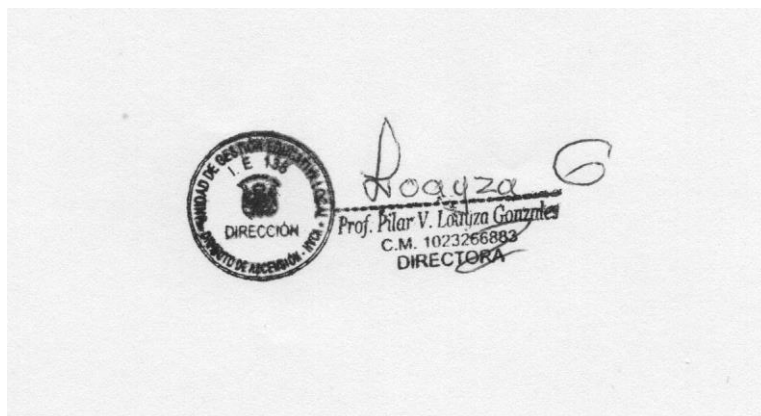 UNIDAD DE GESTIÓN EDUCATIVA LOCAL
I. E 136
DIRECCIÓN
DISTRITO DE ASCENSIÓN - HVCA
Loayza G
Prof. Pilar V. Loayza Gonzales
C.M. 1023266883
DIRECTORA